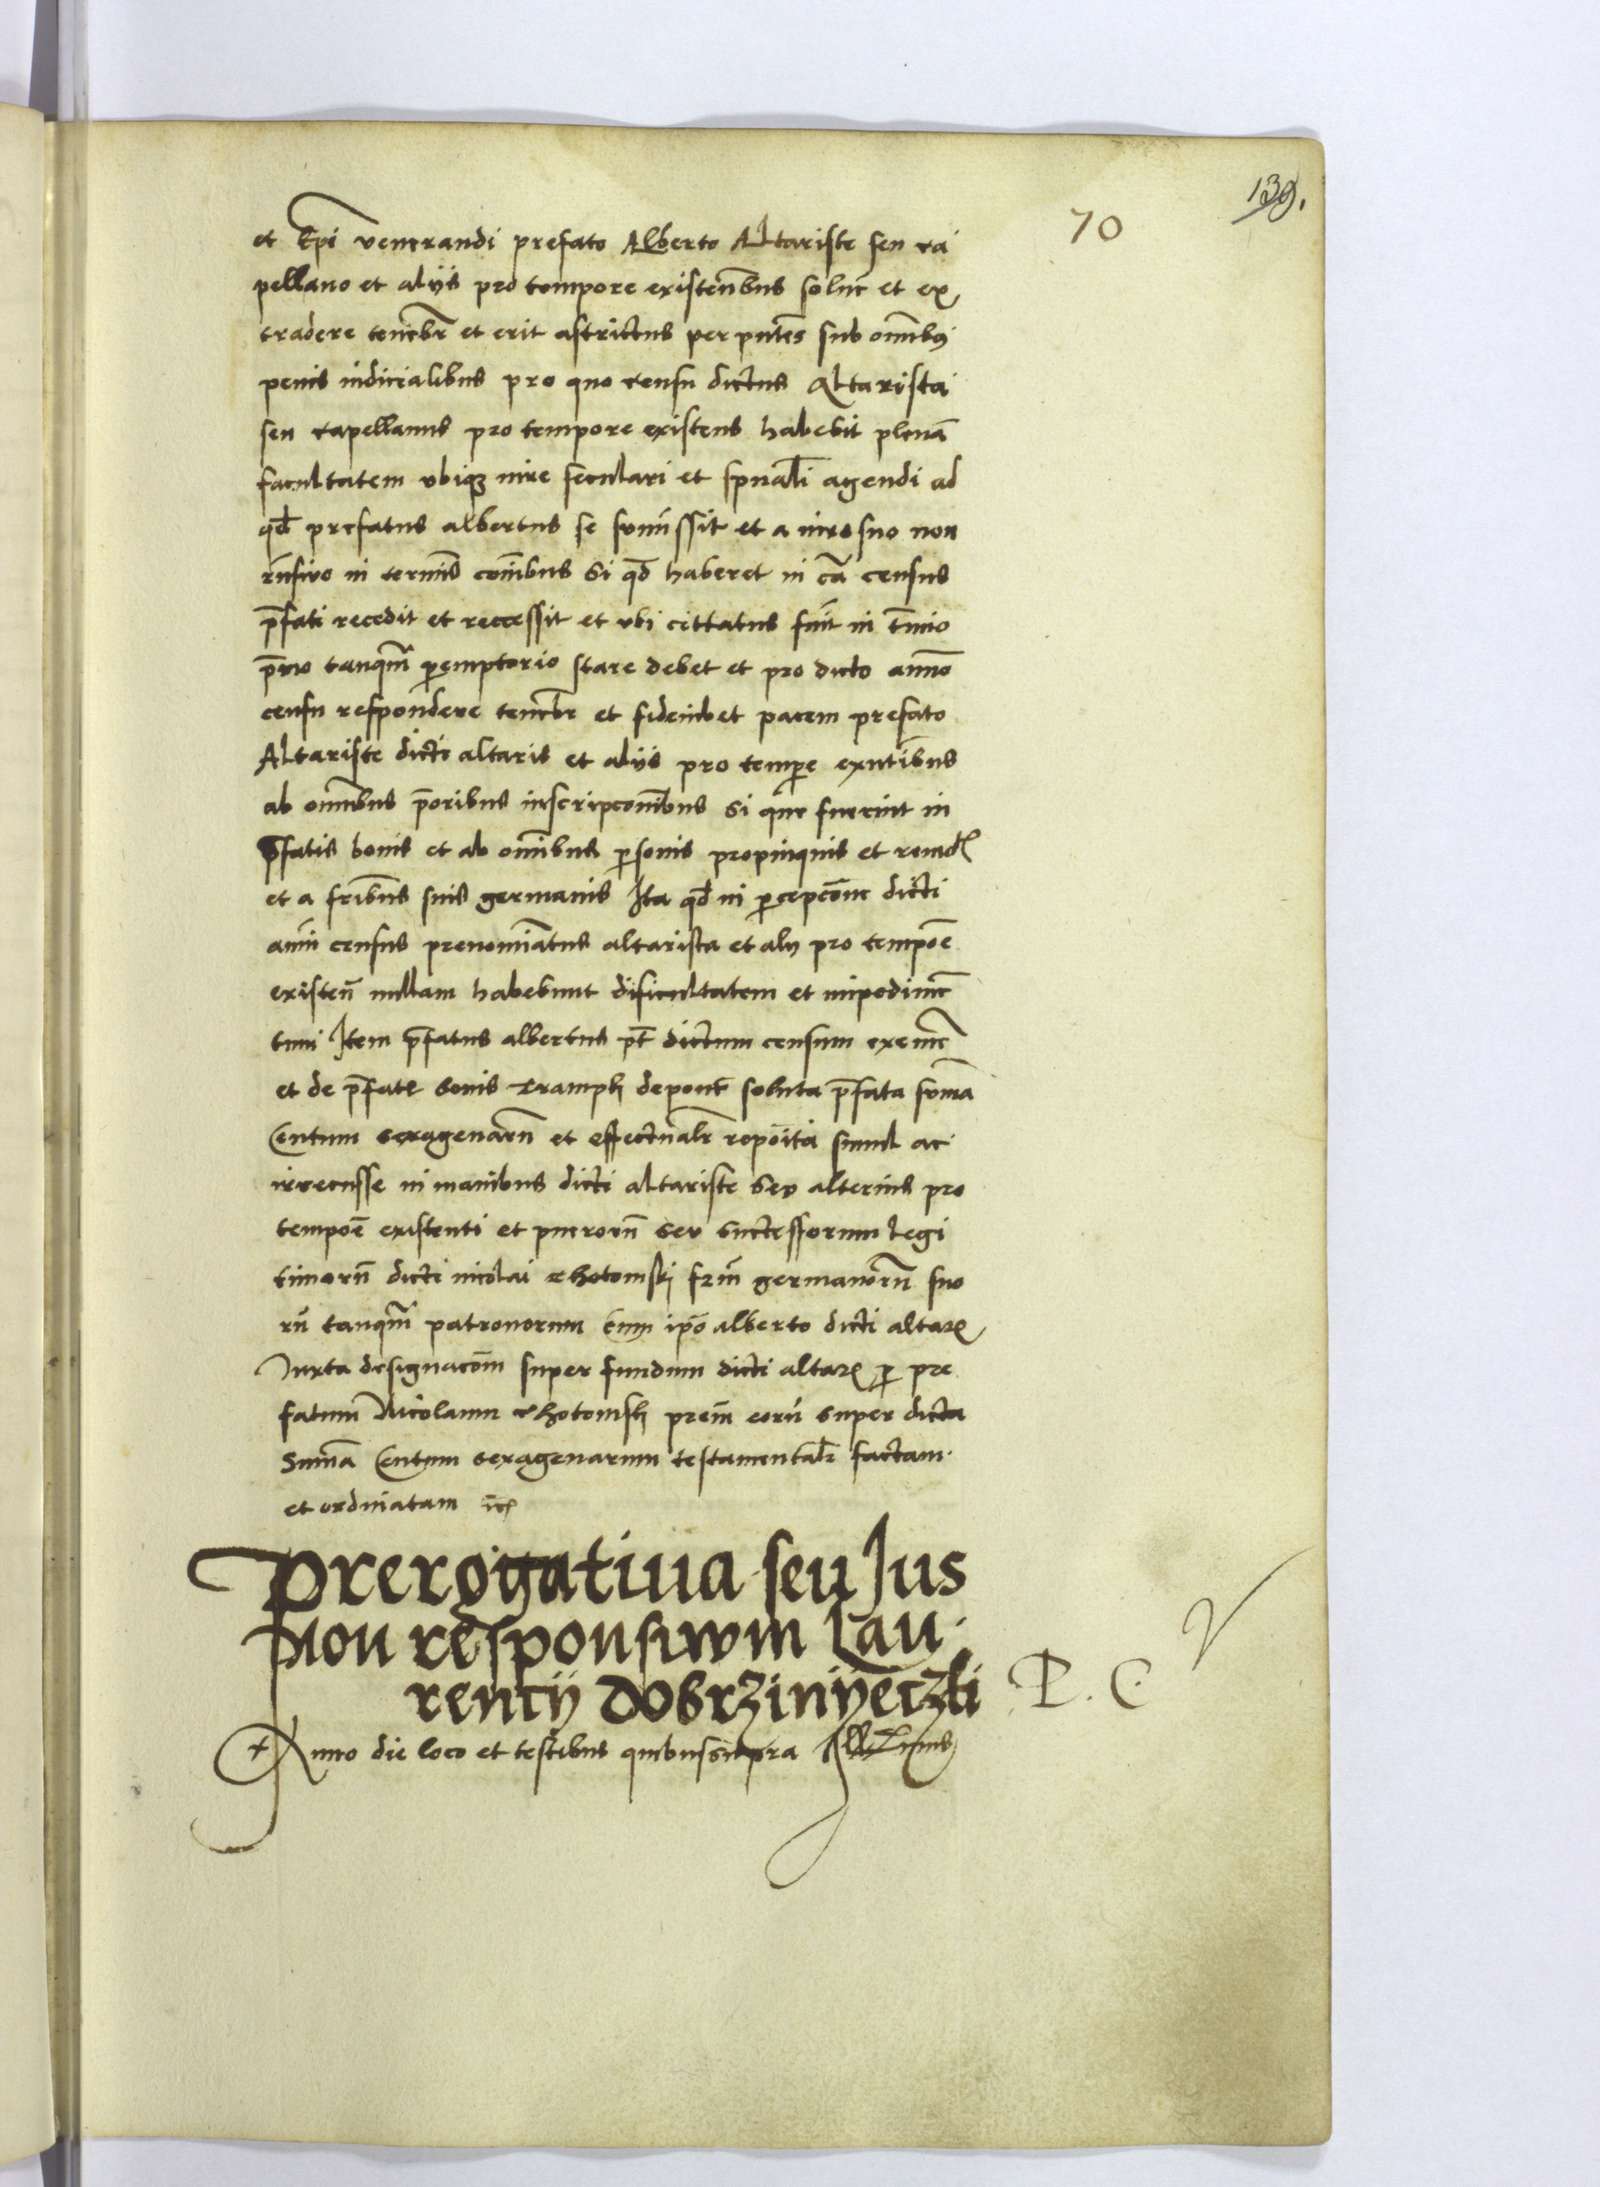 139.
70
et Epi venerandi prefato Alberto Altariste seu ca
pellano et alys pro tempore existentibus soluere et ex
tradere tenebit et erit astrictus per pntes sub omnibus
penis iudicialibus pro quo censu dictus Altarista
seu capellanus pro tempore existens habebit plenā
facultatem vbique iure seculari et spirituali agendi ad
qd prefatus albertus se summissit et a iure suo non
in terminis omnibus Si qd haberet in cā census
pfati recedit et recessit et vbi cittatus fuit in tmio
pmo tanqm peremptorio stare debet et pro dicto anno
censu respondere tenebit et fideiubet pacem prefato
Altariste dicti altaris et alys pro tempore exntibus
ab omnibus prioribus inscripcionibus Si que fuerint in
pfatis bonis et ab omnibus personis propinquis et
et a fribus suis germanis Ita qd in percepcione dicti
anni census prenominatus altarista et aly pro tempore
existen nullam habebunt dificultatem et impedimen
tum Item pfatus albertus dictum censum
et de pfatis bonis soluta pfata summa
Centum sexagenarū et effectualiter reposita simul ac
in manibus dicti altariste Seu alterius pro
tempore existenti et puerorū Seu Successorum legi
timorū dicti nicolai Chotomski frm germanorū suo
rū tanqm patronorum Cum ipo alberto dicti altaris
Iuxta designacōm super fundum dicti altaris per pre
fatum Nicolaum Chotomsky prem eorū Super dicta
Summa Centum sexagenarum testamentalr factam
et ordinatam
Prerogatiua seu Jus
Non responsiwm Lau
rencij Dobrzinijeczki
P. C.
Anno die loco et testibus quibus supra